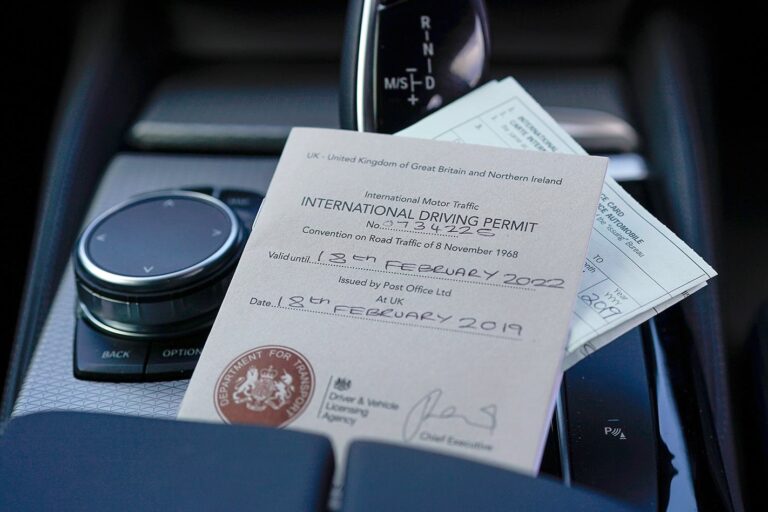 R
N
N
D
M/S
+
UK - United Kingdom of Great Britain and Northern Ireland
International Motor Traffic
INTERNATIONAL DRIVING PERMIT
No. 0734226
Convention on Road Traffic of 8 November 1968
Valid until 18th FEBRUARY 2022
Issued by Post Office Ltd
At UK
Date 18th FEBRUARY 2019
DEPARTMENT FOR TRANSPORT
Driver & Vehicle
Licensing
Agency
Chief Executive
BACK
OPTION
INTERNATIONAL
CARTE INTER
CE CARD
CE AUTOMOBILE
"Issuing" Bureau
TO
Year
YYYY
P